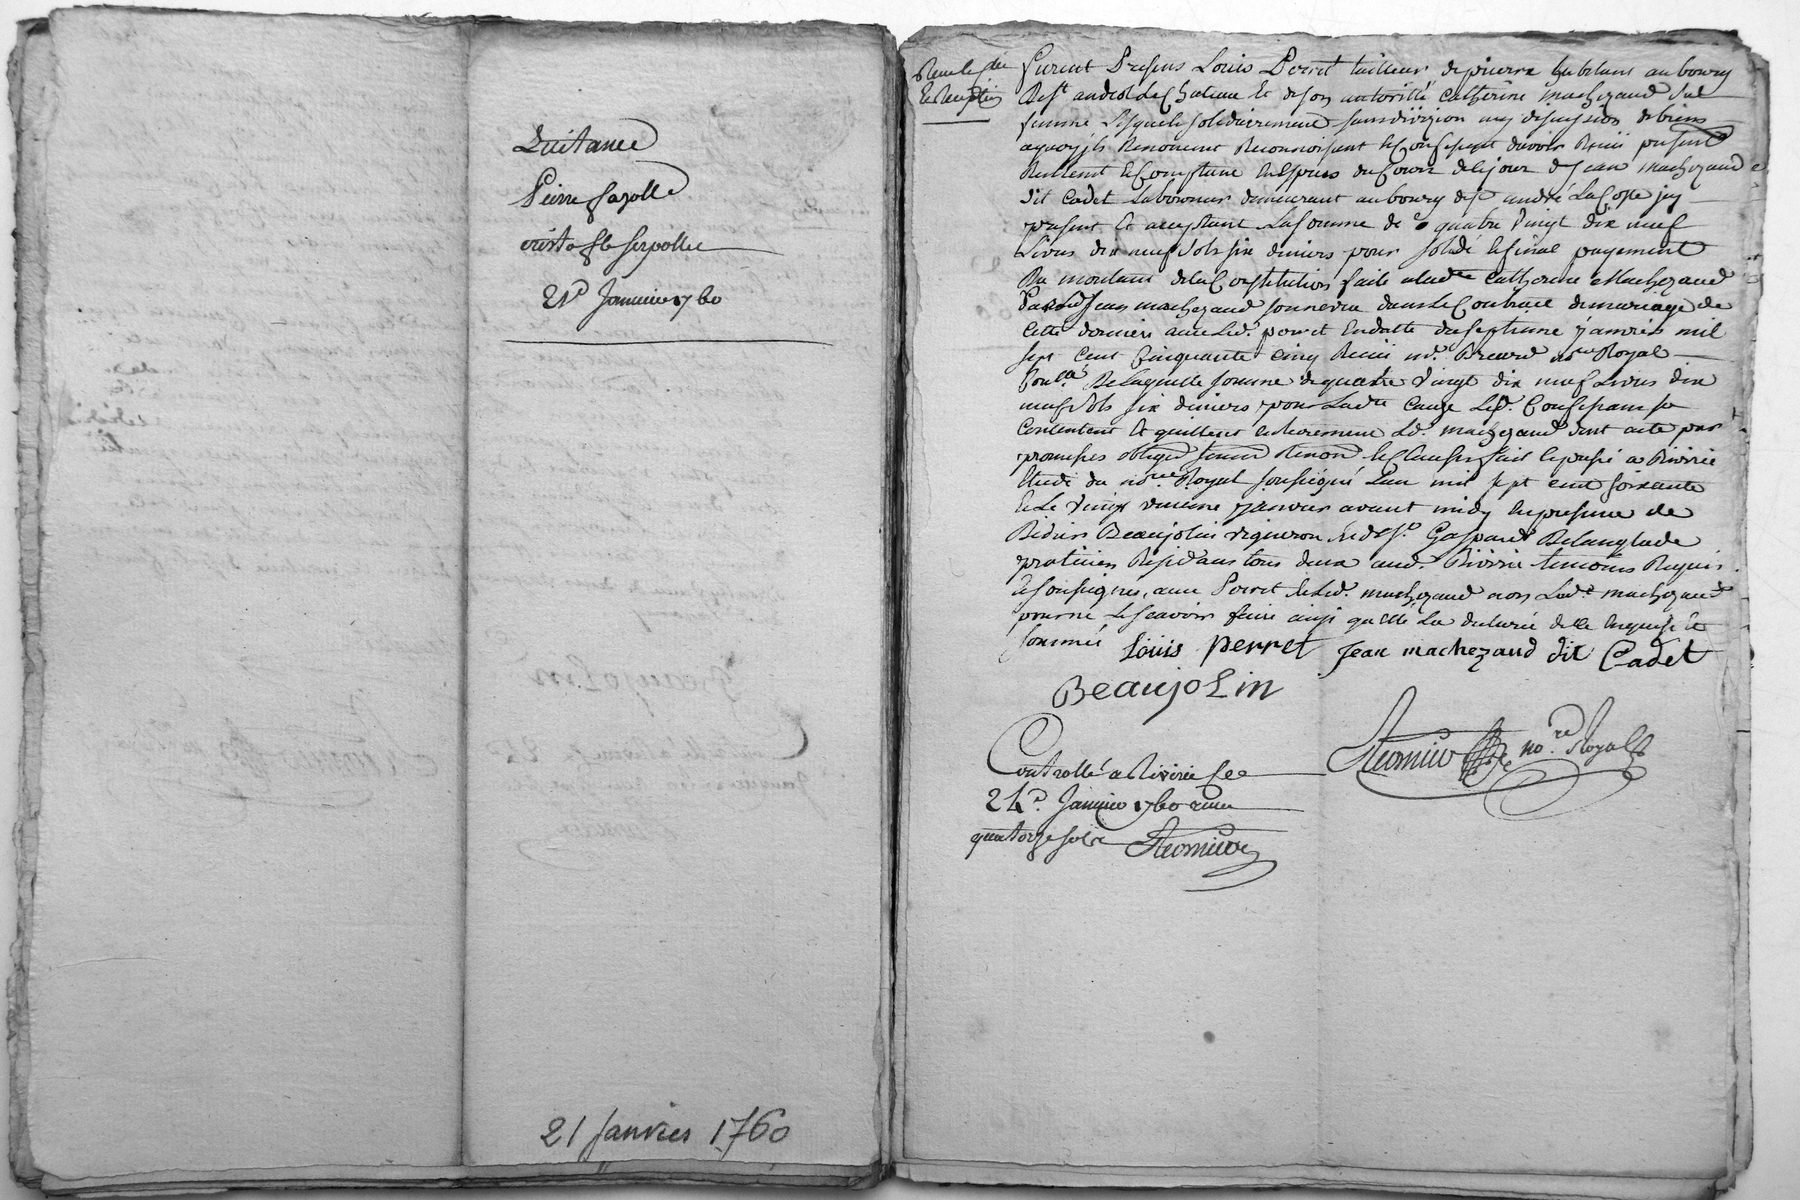 Quitance
Pierre fazolle
crist
21e Janvier 1760
21 Janvier 1760
furent Presens Louis Perret tailleur de pierre habitant au bourg
de st andeol le Chateau Et de son autorité Catherine machezaud sa
femme Lesquels solidairement sans division ny discution de biens
aquoy ils Renoncent Reconnoissent & Confessent davoir Reçu presen
Reellement & Comptant En Especes du Cours de ce jour de Jean machezaud
dit Cadet Laboureur demeurant au bourg de st andré La Coste jcy
present Et acceptant La somme de quatre vingt dix neuf
Livres dix neuf sols six deniers pour solde & final payement
Du montant de la Constitution faite a ladte Catherine Machezaud
Par led Jean machezaud son dans le Contract de mariage de
cette derniere avec led. perret En datte du septieme janvier mil
sept Cent Cinquante Cinq Reçu md. no.re Royal
De Laquelle somme de quatre vingt dix neuf Livres dix
neuf sols six deniers pour Ladte Cause Les. Confessans se
Contentent Et quittent entierement Led. machezaud dont acte par
promesses obligé Renon & Clauses fait & passé a Riverie
Etude du no.re Royal soussigné L'an mil sept cent soixante
& Le vingt unieme janvier avant midy En presence de
Didier Beaujolin vigneron & de sr. Gaspard Delanglade
praticien Residans tous deux aud. Riverie temoins Requis
& soussignes, avec Perret & led. machezaud non Lade. machezaud
pour ne le scavoir faire ainsi quelle La declaré de ce Enquise &
sommée
Louis perret Jean machezaud dit Cadet
BeaujoLin
no.re Royal
Controllé a Riverie Le
24e. Janvier 1760 recu
quatorze sols